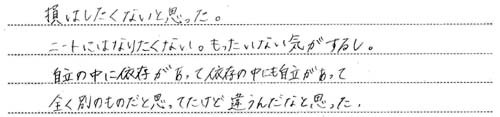 損はしたくないと思った。
ニートにはなりたくない。もったいない気がするし。
自立の中に依存があって依存の中にも自立があって
全く別のものだと思ってたけど違うんだなと思った.